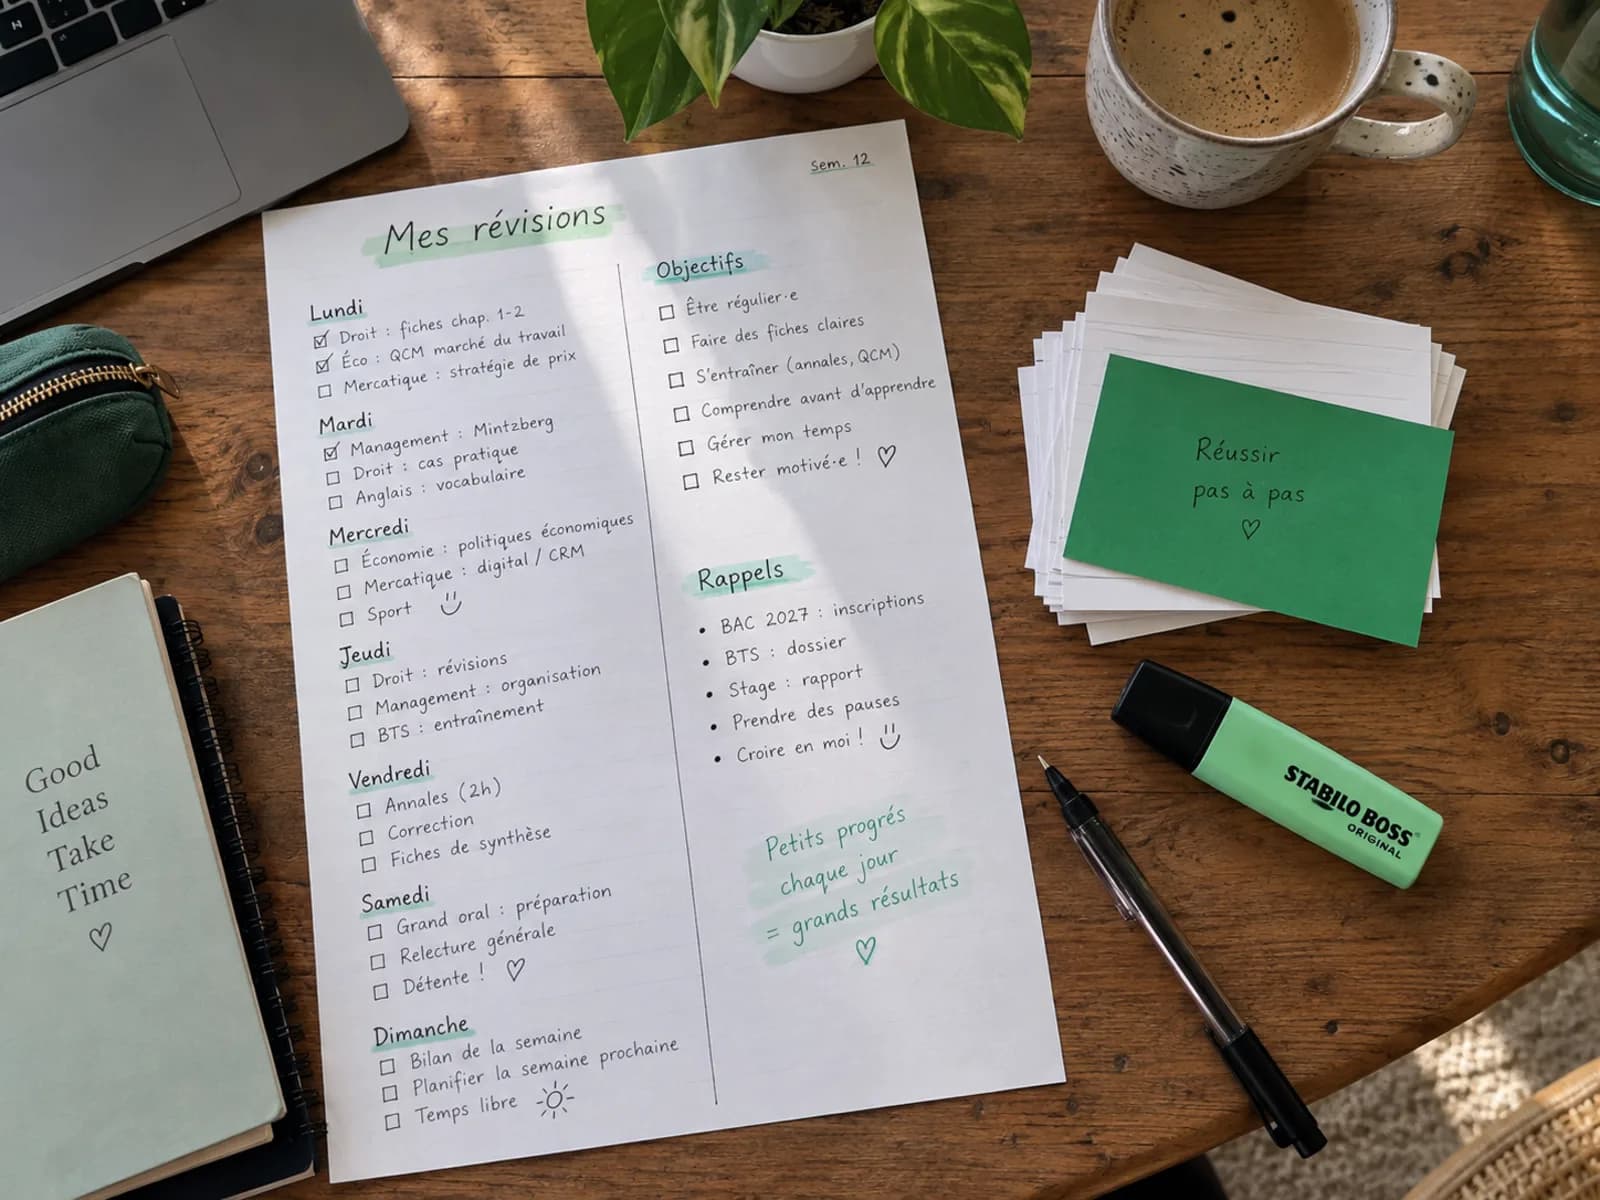 Sem. 12
Mes révisions
Lundi
Droit : fiches chap. 1-2
Éco : QCM marché du travail
Mercatique : stratégie de prix
Mardi
Management : Mintzberg
Droit : cas pratique
Anglais : vocabulaire
Mercredi
Économie : politiques économiques
Mercatique : digital / CRM
Sport
Jeudi
Droit : révisions
Management : organisation
BTS : entraînement
Vendredi
Annales (2h)
Correction
Fiches de synthèse
Samedi
Grand oral : préparation
Relecture générale
Détente !
Dimanche
Bilan de la semaine
Planifier la semaine prochaine
Temps libre
Objectifs
Être régulier·e
Faire des fiches claires
S'entraîner (annales, QCM)
Comprendre avant d'apprendre
Gérer mon temps
Rester motivé·e !
Rappels
• BAC 2027 : inscriptions
• BTS : dossier
• Stage : rapport
• Prendre des pauses
• Croire en moi !
Petits progrés
chaque jour
= grands résultats
Réussir
pas à pas
STABILO BOSS
ORIGINAL
Good
Ideas
Take
Time